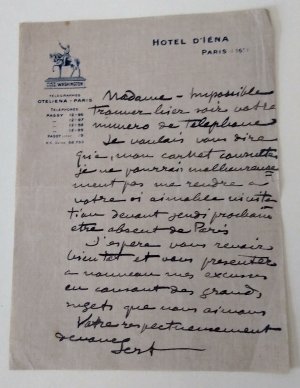 HOTEL D'IÉNA
PARIS
WASHINGTON
TÉLÉGRAMMES
OTELIENA-PARIS
TÉLÉPHONE
PASSY 12-96
12-97
12-98
12-99
PASSY
R.C. SEINE
Madame - Impossible
trouver hier soir votre
numero de telephone
Je voulais vous dire
qu'a mon
je ne pourrais malheureuse
ment pas me rendre a
votre si aimable invita
tion devant jeudi prochain
etre absent de Paris
J'espere vous revoir
bientot et vous presenter
a nouveau mes excuses
en causant des grands
sujets que nous aimons
Votre respectueusement
devoue Sert